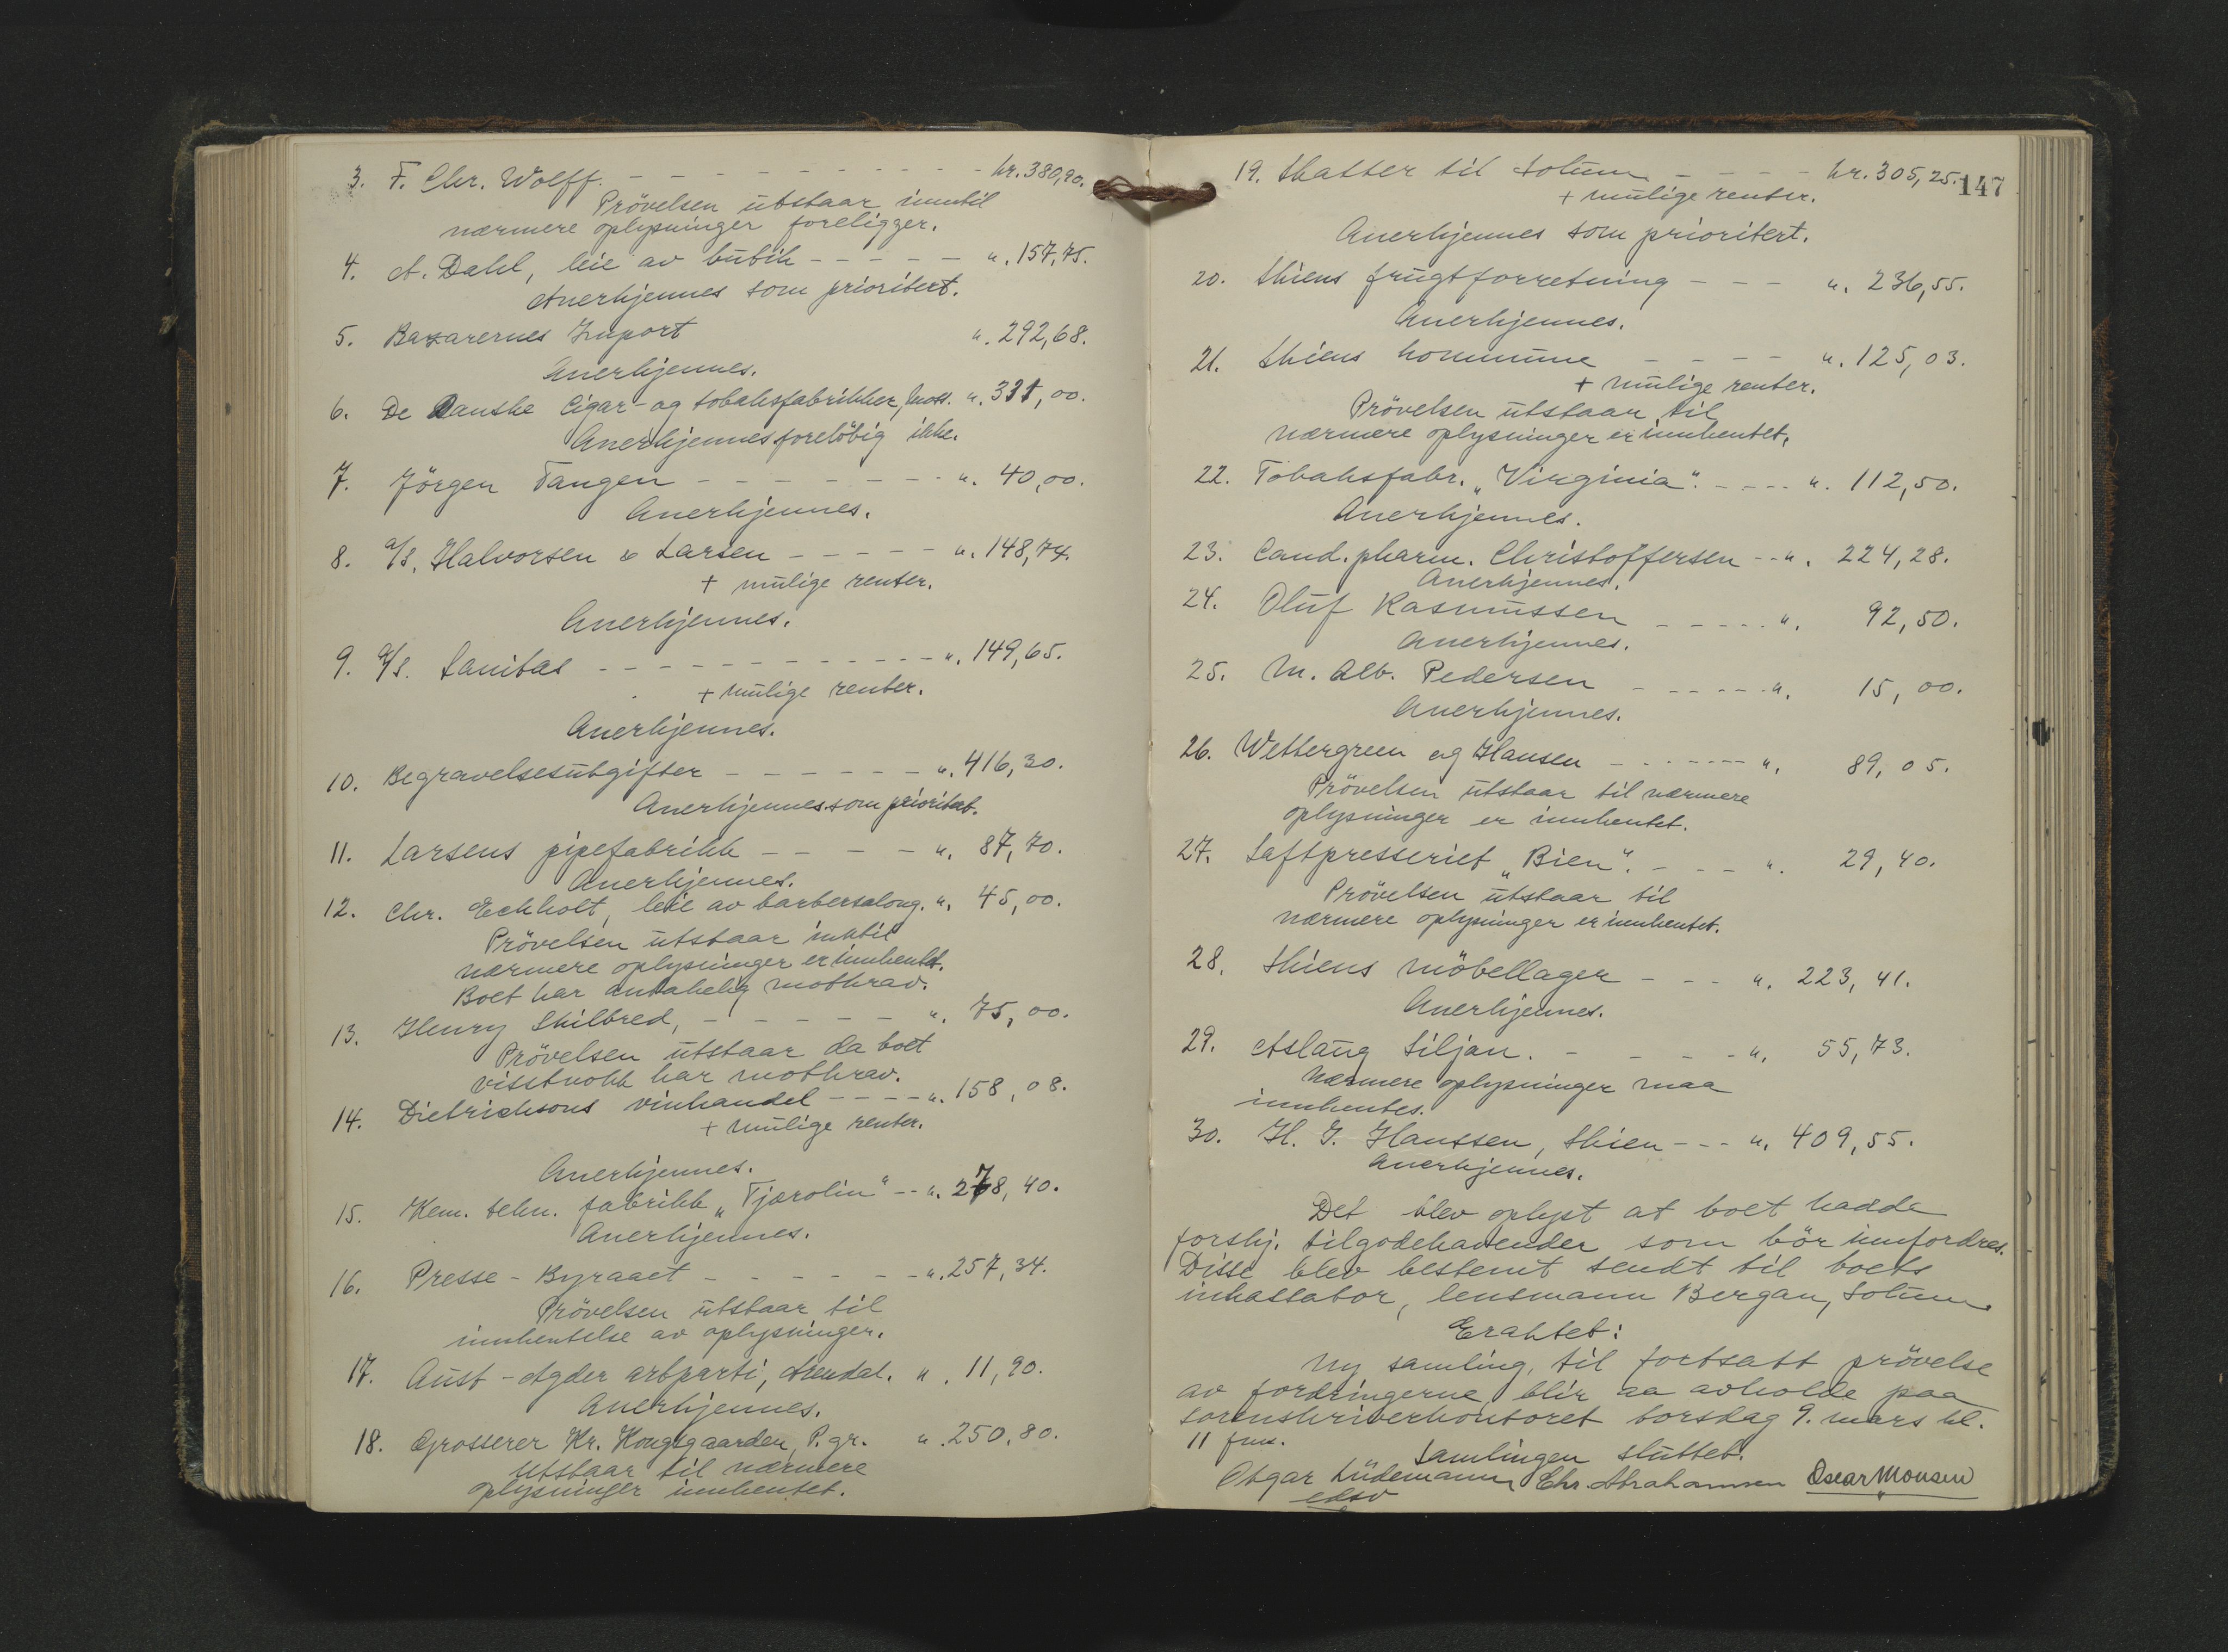 3. F. Chr. Wolff. - - - - - - - - - - kr. 380,90.
Prövelsen utstaar inntil
nærmere oplysninger foreligger.
4. A. Dahl, leie av butik - - - - - ". 157,75.
Anerkjennes som prioritert.
5. Bazarernes Import ". 292,68.
Anerkjennes.
6. De Danske Cigar- og tobaksfabrikker, Moss. ". 331,00.
Anerkjennes foreløbig ikke.
7. Jörgen Tangen - - - - - - - - ". 40,00.
Anerkjennes.
8. A/S. Halvorsen & Larsen - - - - - ". 148,74.
+ mulige renter.
Anerkjennes.
9. A/S. Sanitas - - - - - - - - - - - - ". 149,65.
+ mulige renter.
Anerkjennes.
10. Begravelsesutgifter - - - - - - - ". 416,30.
Anerkjennes som prioritert.
11. Larsens pipefabrikk - - - - - ". 87,70.
Anerkjennes.
12. Chr. Eckholt, leie av barbersalong. ". 45,00.
Prövelsen utstaar inntil
nærmere oplysninger er innhentet.
Boet har antakelig motkrav.
13. Henry Skilbred, - - - - - - ". 75,00.
Prövelsen utstaar da boet
visstnokk har motkrav.
14. Dietrichsons vinhandel - - - - ". 158,08.
+ mulige renter.
Anerkjennes.
15. Kem. tekn. fabrikk „Tjærolin" - - ". 278,40.
Anerkjennes.
16. Presse - Byraaet - - - - - - - ". 257,34.
Prövelsen utstaar til
innhentelse av oplysninger.
17. Aust-Agder arbparti, Arendal. ". 11,90.
Anerkjennes.
18. Grosserer Kr. Kongsgaarden, P.gr. ". 250,80.
Utstaar til nærmere
oplysninger innhentet.
147
19. Skatter til Solum - - - - kr. 305,25.
+ mulige renter.
Anerkjennes som prioritert.
20. Skiens frugtforretning - - - ". 236,55.
Anerkjennes.
21. Skiens kommune - - - - ". 125,03.
+ mulige renter.
Prövelsen utstaar til
nærmere oplysninger er innhentet.
22. Tobaksfabr. „Virginia". - - - - ". 112,50.
Anerkjennes.
23. Cand. pharm. Christoffersen - - ". 224,28.
Anerkjennes.
24. Oluf Rasmussen - - - - - ". 92,50.
Anerkjennes.
25. M. Alb. Pedersen - - - - - - ". 15,00.
Anerkjennes.
26. Wettergreen og Hansen - - - - - - - ". 89,05.
Prövelsen utstaar til nærmere
oplysninger er innhentet.
27. Saftpresseriet „Bien". - - - - ". 29,40.
Prövelsen utstaar til
nærmere oplysninger er innhentet.
28. Skiens möbellager - - - ". 223,41.
Anerkjennes.
29. Aslaug Siljan. - - - - - ". 55,73.
Nærmere oplysninger maa
innhentes.
30. H. J. Hanssen, Skien - - - ". 409,55.
Anerkjennes.
Det blev oplyst at boet hadde
forskj. tilgodehavender som bör innfordres.
Disse blev bestemt sendt til boets
inkassator, lensmann Bergan, Solum.
Eraktet:
Ny samling, til fortsatt prövelse
av fordringerne, blir aa avholde paa
sorenskriverkontoret torsdag 9. mars kl.
11 fmd.
Samlingen sluttet.
Otgar Lüdemann Chr. Abrahamsen Oscar Monsen
edsv